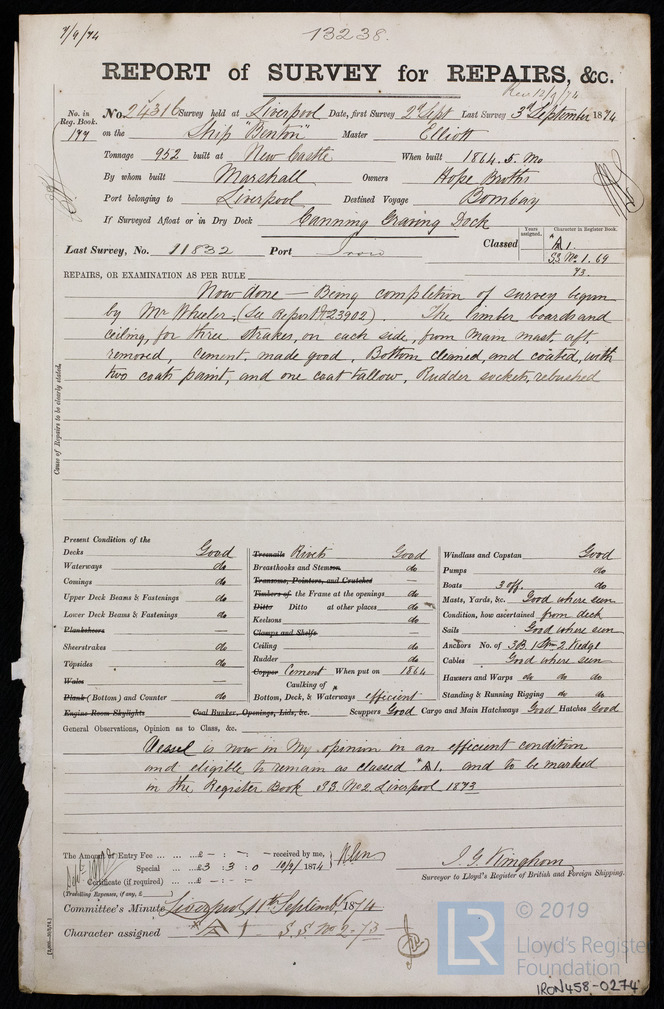 7/9/74
13238.
REPORT of SURVEY for REPAIRS, &c.
Rec 12/9/74
No. in Reg. Book.
177
No. 24316 Survey held at Liverpool Date, first Survey 2nd Sept Last Survey 3rd September 1874
on the Ship "Benton" Master Elliott
Tonnage 952 built at New Castle When built 1864. 5. Mo
By whom built Marshall Owners Hope Broths
Port belonging to Liverpool Destined Voyage Bombay
If Surveyed Afloat or in Dry Dock Canning Graving Dock
Years assigned. Character in Register Book.
Last Survey, No. 11832 Port Iron Classed A 1.
SS. No. 1. 69
73.
REPAIRS, OR EXAMINATION AS PER RULE
Now done — Being completion of survey begun
by Mr Wheeler. (See Report No 23902). The limber boards and
ceiling, for three strakes, on each side, from main mast, aft,
removed, cement, made good, Bottom cleaned, and coated, with
two coats paint, and one coat tallow, Rudder sockets, rebushed
Cause of Repairs to be clearly stated.
Present Condition of the
Decks Good
Waterways do
Comings do
Upper Deck Beams & Fastenings do
Lower Deck Beams & Fastenings do
Planksheers —
Sheerstrakes do
Topsides do
Wales —
Plank (Bottom) and Counter do
Engine Room Skylights Coal Bunker, Openings, Lids, &c.
Treenails Rivets Good
Breasthooks and Stemson do
Transoms, Pointers, and Crutches —
Timbers of the Frame at the openings do
Ditto Ditto at other places do
Keelsons do
Clamps and Shelfs —
Ceiling do
Rudder do
Copper Cement When put on 1864
Caulking of
Bottom, Deck, & Waterways efficient
Windlass and Capstan Good
Pumps do
Boats 3 off. do
Masts, Yards, &c. Good where seen
Condition, how ascertained from deck
Sails Good where seen
Anchors No. of 3B. 1 Stm 2 Kedge
Cables Good where seen
Hawsers and Warps do do do
Standing & Running Rigging do do do
Scuppers Good Cargo and Main Hatchways Good Hatches Good
General Observations, Opinion as to Class, &c.
Vessel is now in my opinion in an efficient condition
and eligible to remain as classed A1. and to be marked
in the Register Book SS. No 2. Liverpool 1873
The Amount of Entry Fee ... ... £ - : - : - received by me,
Special ... ... £3 : 3 : 0 10/9/1874
Certificate (if required) ... £ - : - : -
(Travelling Expenses, if any, £ )
J. G. Kinghorn
Surveyor to Lloyd's Register of British and Foreign Shipping.
Committee's Minute Liverpool 11th September 1874
Character assigned A 1 S.S. No 2-73
LR
© 2019
Lloyd's Register
Foundation
IRON458-0274